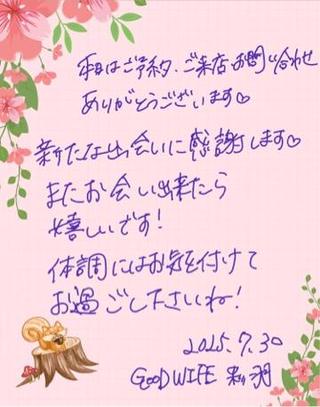 本日はご予約、ご来店、お問い合わせ
ありがとうございます♡
新たな出会いに感謝します♡
またお会い出来たら
嬉しいです!
体調にはお気を付けて
お過ごし下さいね!
2025.7.30
GOOD WIFE